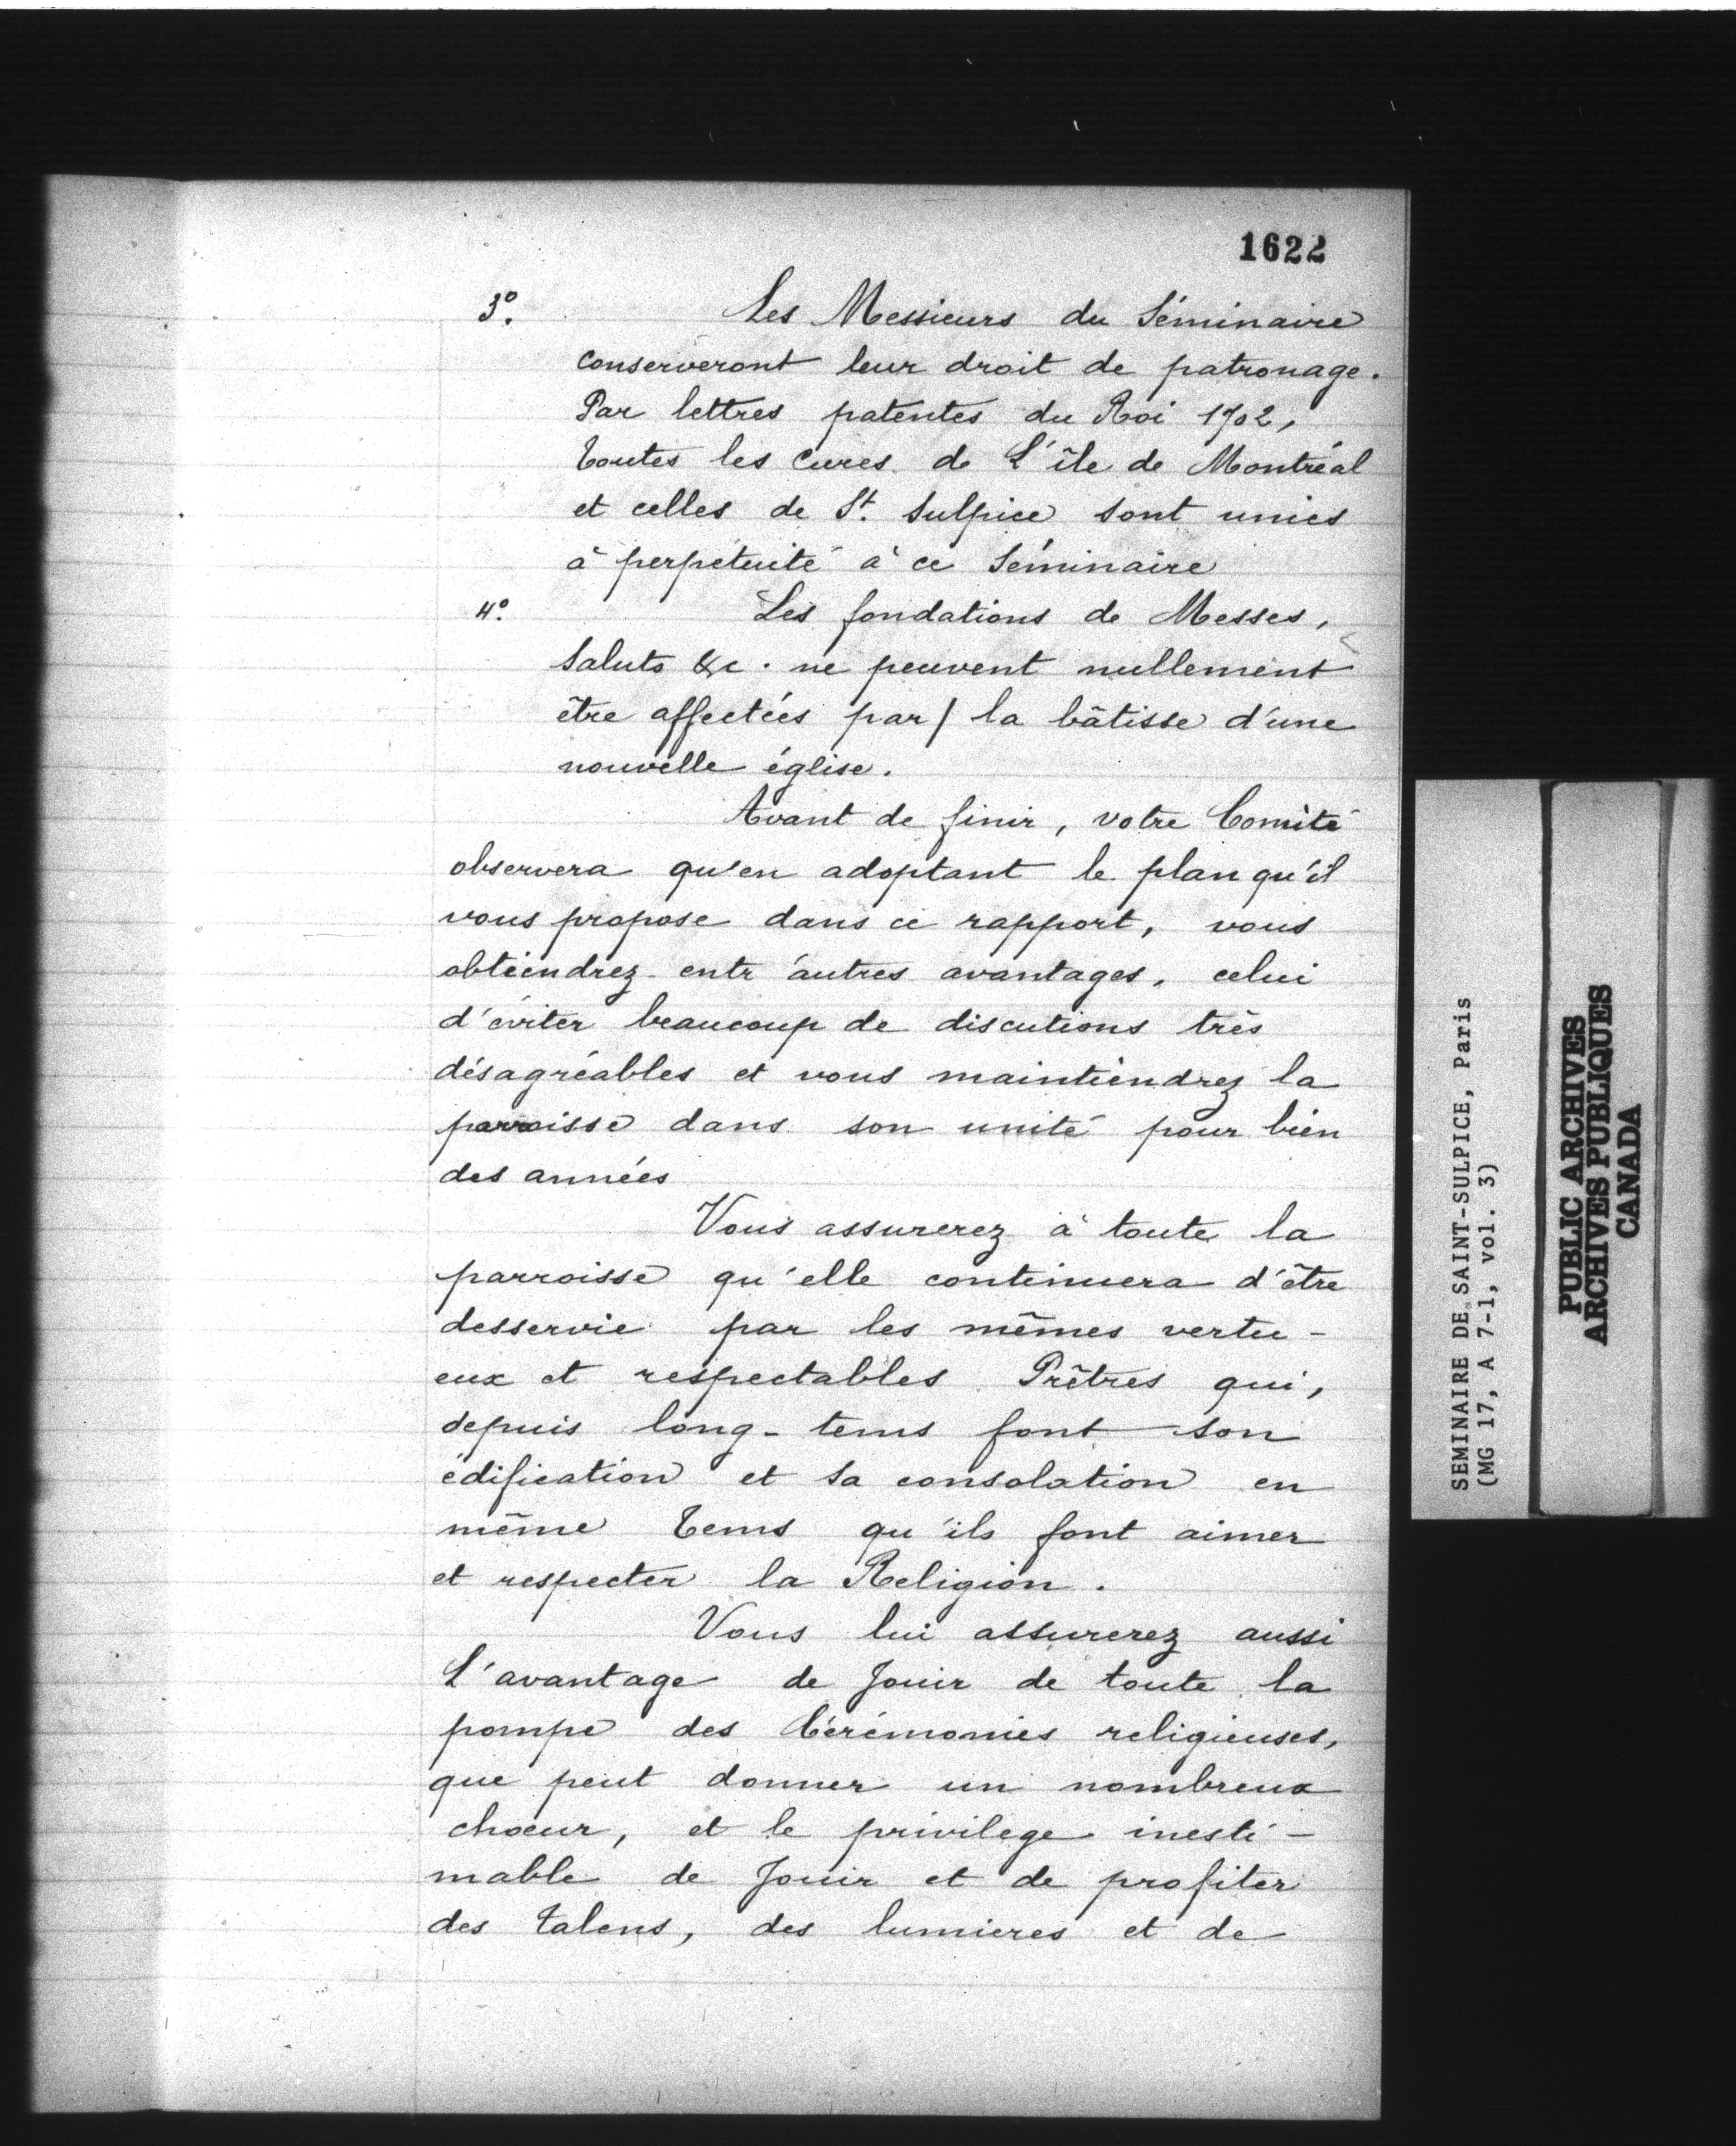 1622
3º. Les Messieurs du Séminaire
conserveront leur droit de patronage.
Par lettres patentes du Roi 1702,
toutes les Cures de L'île de Montréal
et celles de St. Sulpice sont unies
à perpétuité à ce Séminaire
4º. Les fondations de Messes,
Saluts &c. ne peuvent nullement
être affectées par/ la bâtisse d'une
nouvelle église.
Avant de finir, votre Comité
observera qu'en adoptant le plan qu'il
vous propose dans ce rapport, vous
obtiendrez entr'autres avantages, celui
d'éviter beaucoup de discutions très
désagréables et vous maintiendrez la
parroisse dans son unité pour bien
des années
Vous assurerez à toute la
parroisse qu'elle continuera d'être
desservie par les mêmes vertu-
eux et respectables Prêtres qui,
depuis long-tems font son
édification et sa consolation en
même tems qu'ils font aimer
et respecter la Religion.
Vous lui assurerez aussi
L'avantage de Jouir de toute la
pompe des Cérémonies religieuses,
que peut donner un nombreux
choeur, et le privilege inesti-
mable de Jouir et de profiter
des talens, des lumieres et de
SEMINAIRE DE SAINT-SULPICE, Paris
(MG 17, A 7-1, vol. 3)
PUBLIC ARCHIVES
ARCHIVES PUBLIQUES
CANADA